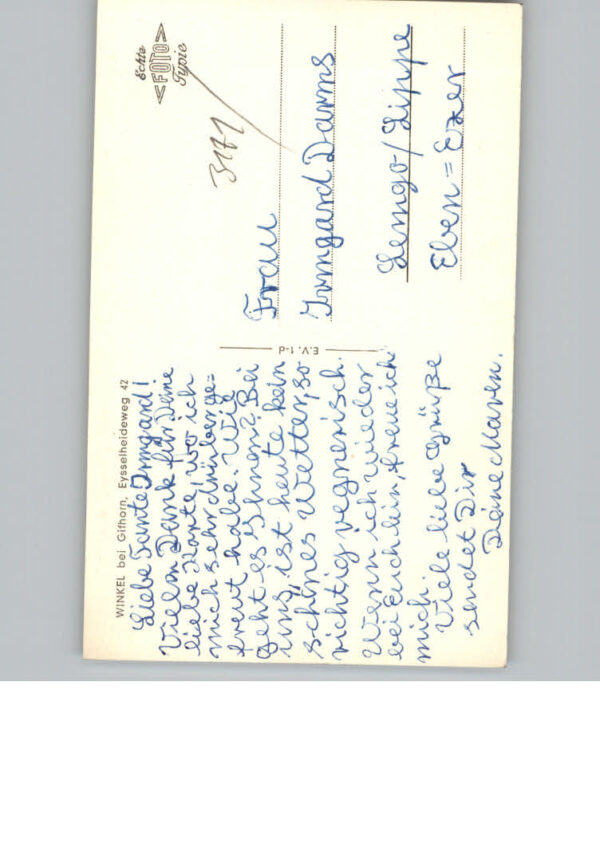 WINKEL bei Gifhorn, Eysselheideweg 42
Liebe Tante Irmgard!
Vielen Dank für Deine
liebe Karte, wo ich
mich sehr drüber ge=
freut habe. Wie
geht es Ihnen? Bei
uns, ist heute kein
schönes Wetter, so
richtig regnerisch.
Wenn ich wieder
bei Euch bin, freue ich
mich.
Viele liebe Grüße
sendet Dir
Deine Maren.
E.V. 1-d
Echte
<FOTO>
Typie
3171
Frau
Irmgard Darms
Lemgo/Lippe
Eben=Ezer